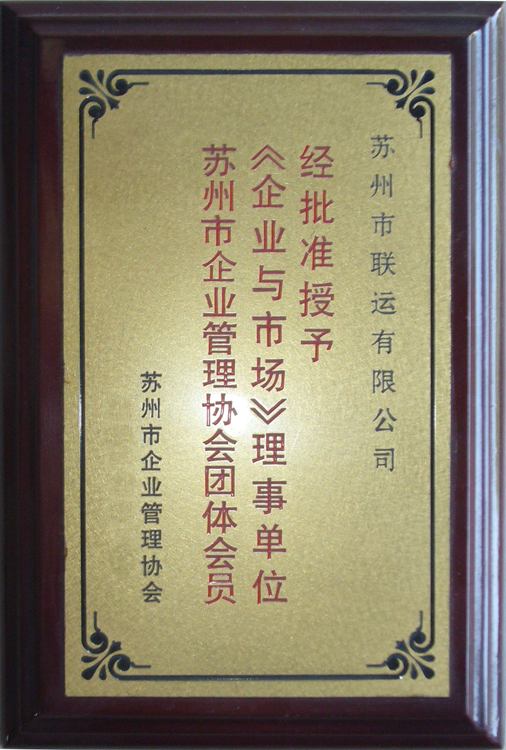 苏州市联运有限公司
经批准授予
《企业与市场》理事单位
苏州市企业管理协会团体会员
苏州市企业管理协会